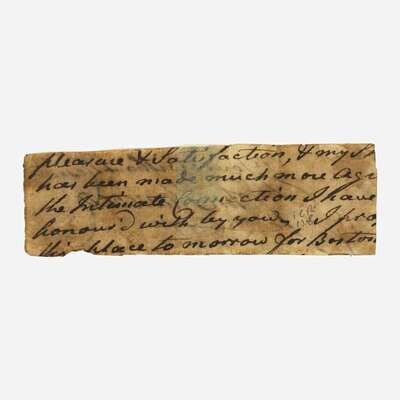 pleasure & Satisfaction, & my
has been made much more agr
the Intimate Connection I have
honour'd with by yours. I pro
this place to morrow for Boston